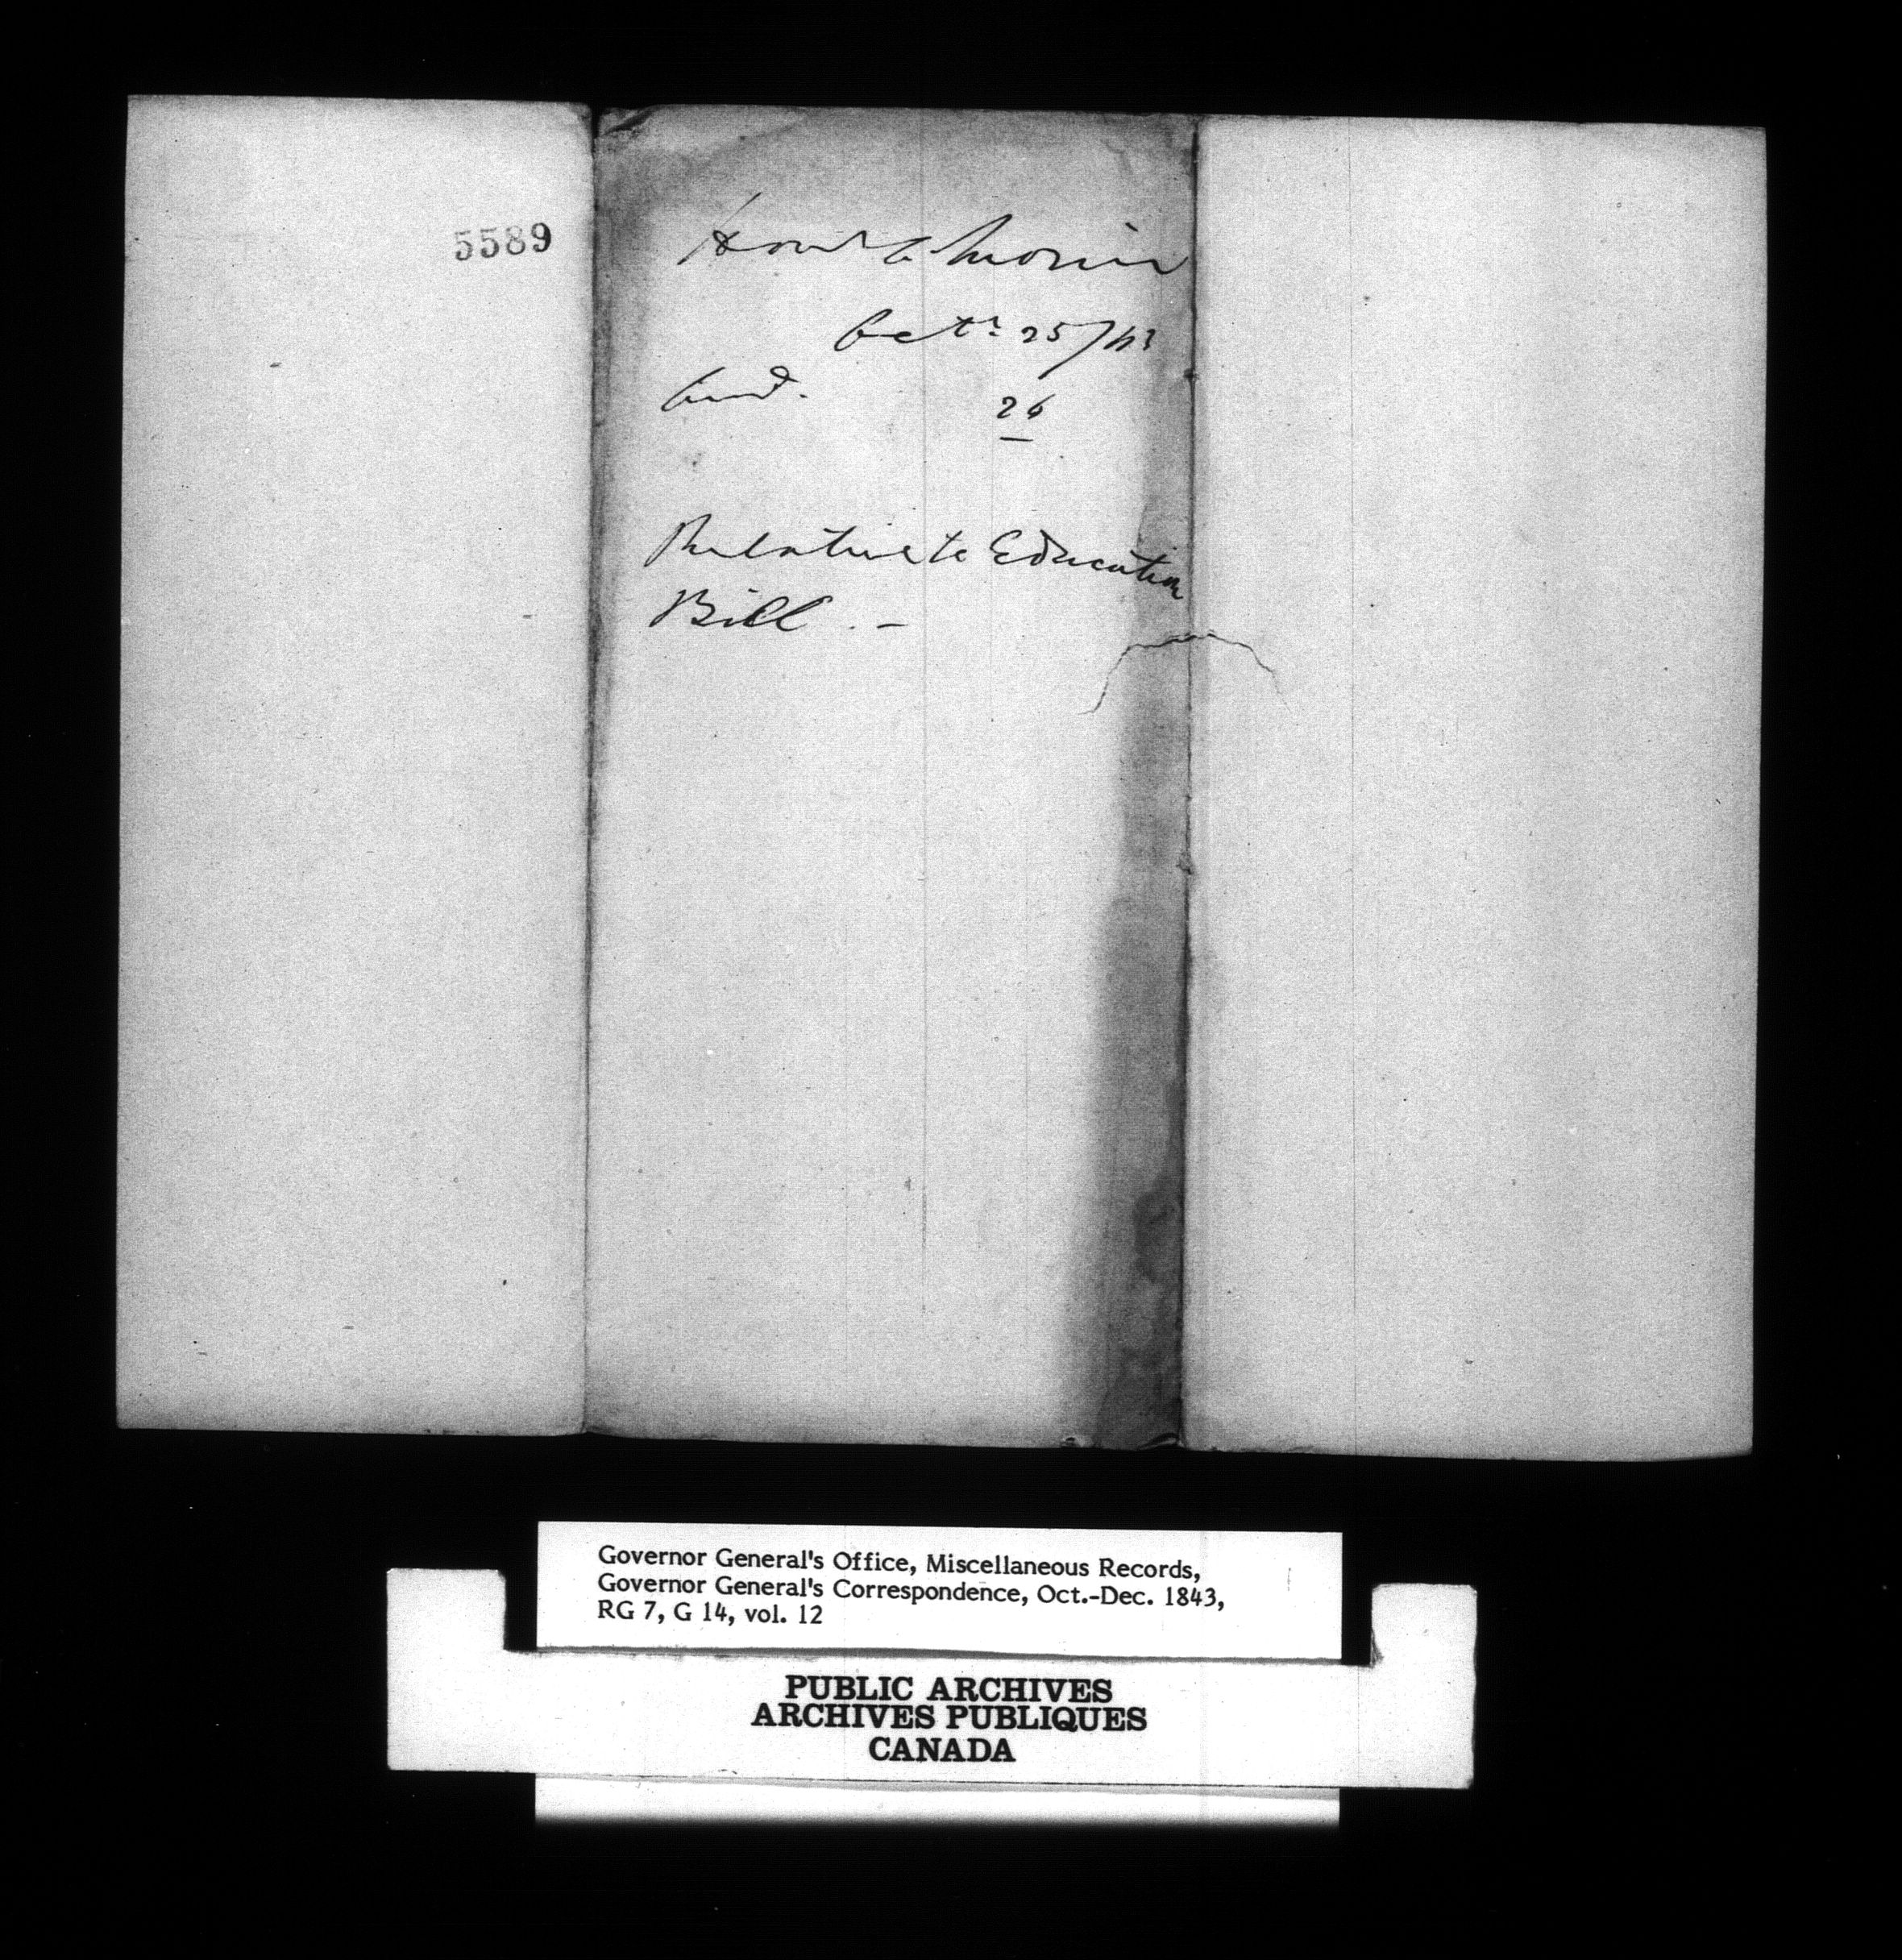 5589
Hon Morin
Octr 25/43
26
Relative to Education
Bill . -
Governor General's Office, Miscellaneous Records,
Governor General's Correspondence, Oct.-Dec. 1843,
RG 7, G 14, vol. 12
PUBLIC ARCHIVES
ARCHIVES PUBLIQUES
CANADA